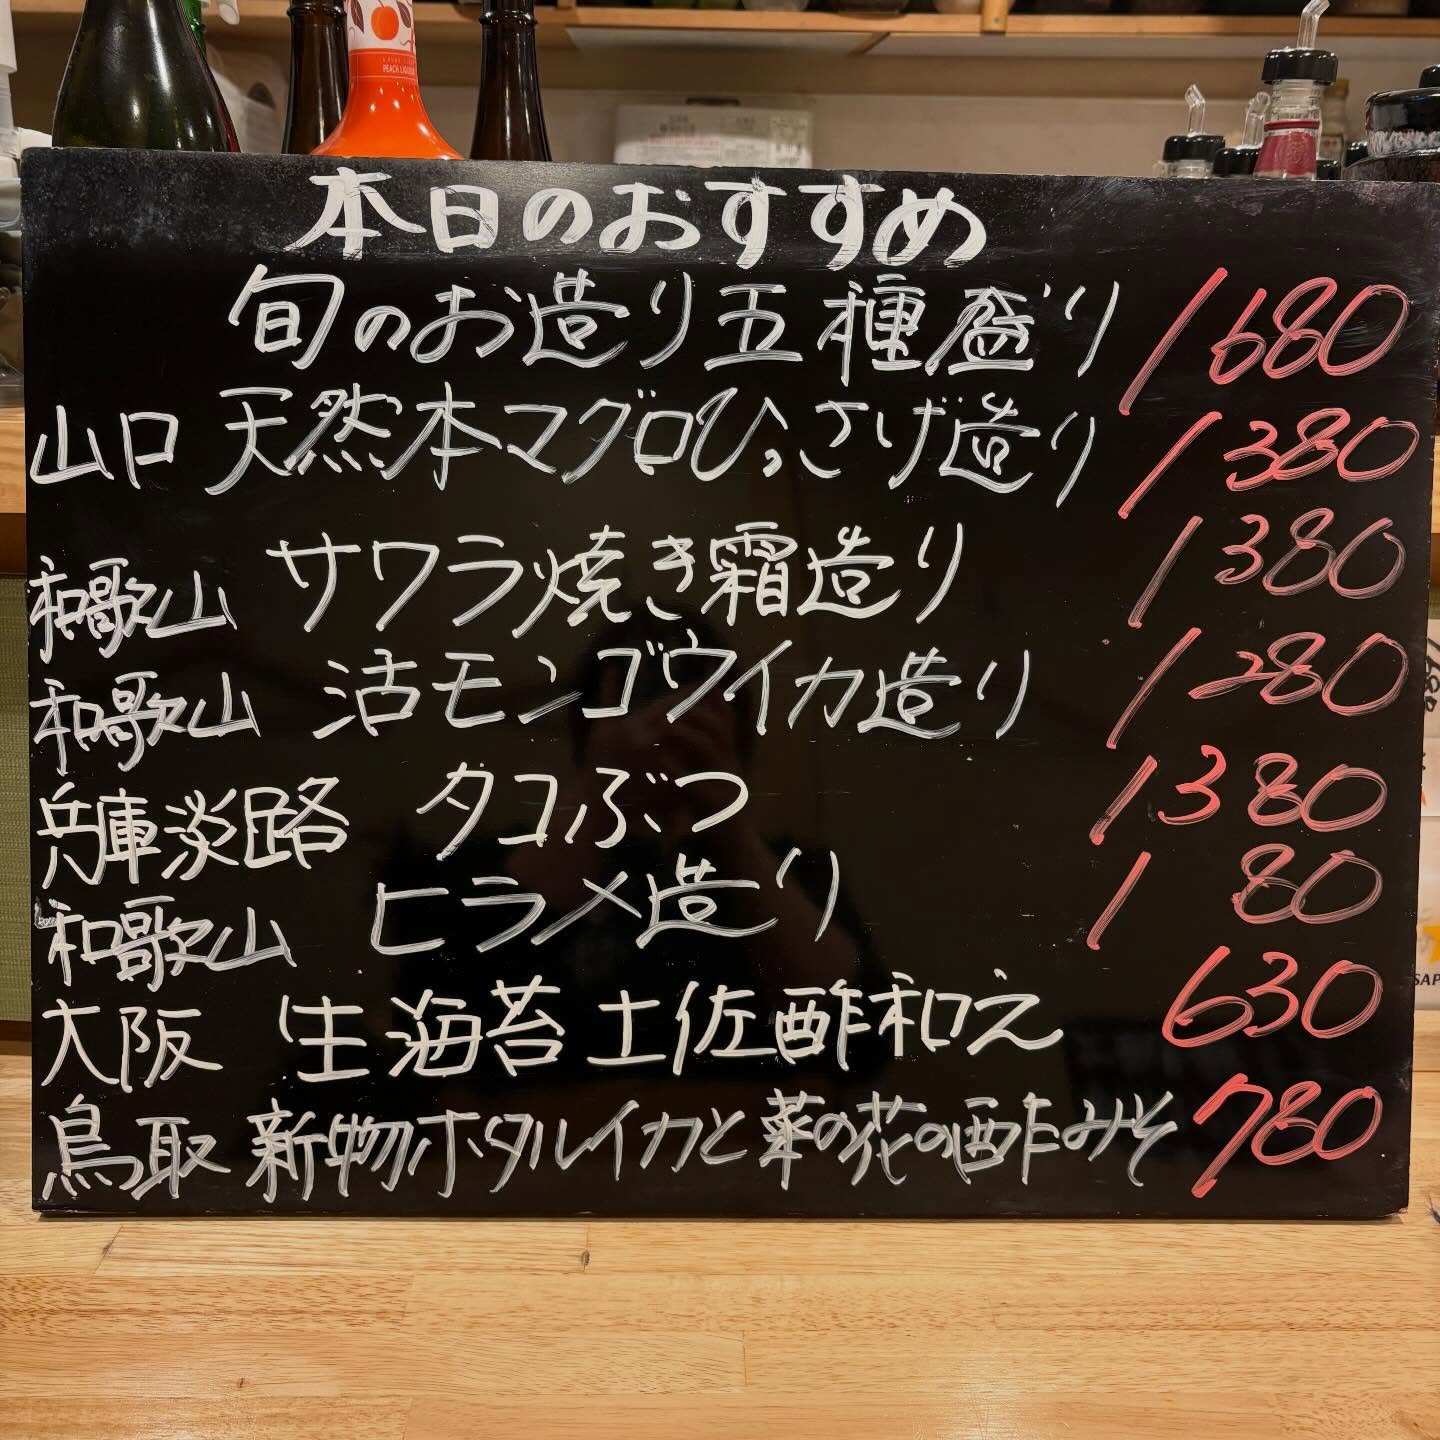 本日のおすすめ
旬のお造り五種盛り 1680
山口 天然本マグロひっさげ造り 1380
和歌山 サワラ焼き霜造り 1380
和歌山 活モンゴウイカ造り 1280
兵庫淡路 タコぶつ 1380
和歌山 ヒラメ造り 1 80
大阪 生海苔土佐酢和え 630
鳥取 新物ホタルイカと菜の花の酢みそ 780
PEACH